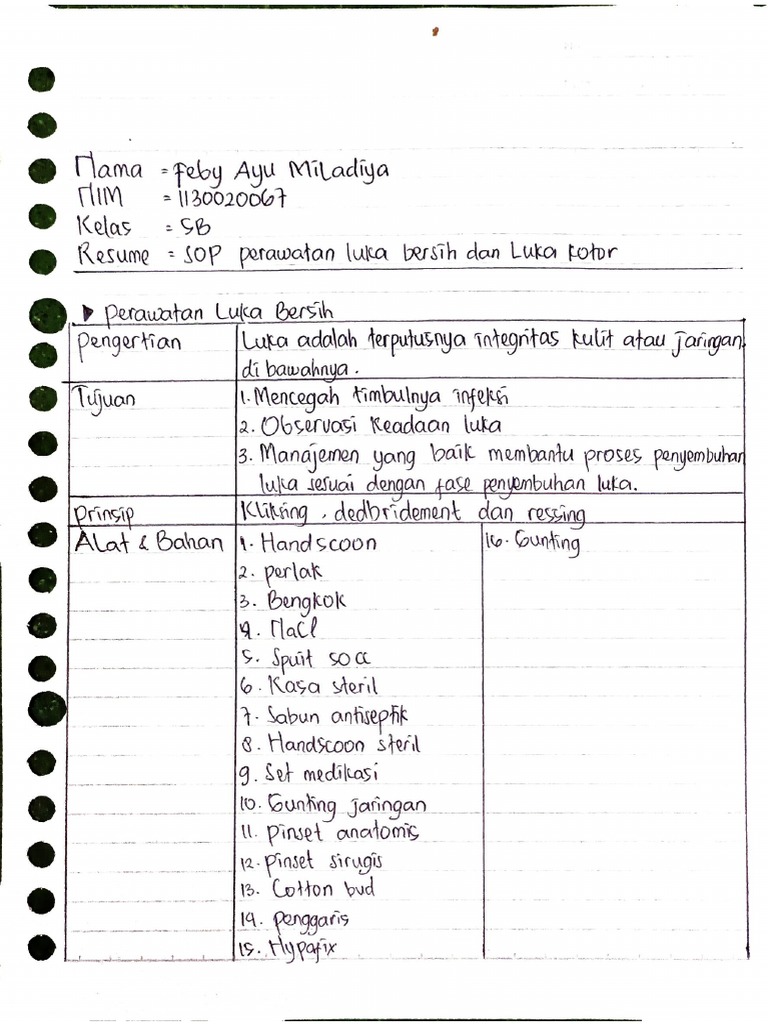 Nama = Feby Ayu Miladiya
NIM = 1130020067
Kelas = 5B
Resume = SOP perawatan luka bersih dan Luka kotor
▶ Perawatan Luka Bersih
Pengertian Luka adalah terputusnya integritas kulit atau jaringan
di bawahnya.
Tujuan 1. Mencegah timbulnya infeksi
2. Observasi keadaan luka
3. Manajemen yang baik membantu proses penyembuhan
luka sesuai dengan fase penyembuhan luka.
Prinsip Kliksing, dedbridement dan ressing
Alat & Bahan 1. Handscoon 16. Gunting
2. perlak
3. Bengkok
4. NaCl
5. Spuit 50 cc
6. Kasa steril
7. Sabun antiseptik
8. Handscoon steril
9. Set medikasi
10. Gunting jaringan
11. pinset anatomis
12. pinset sirugis
13. Cotton bud
14. penggaris
15. Hypafix